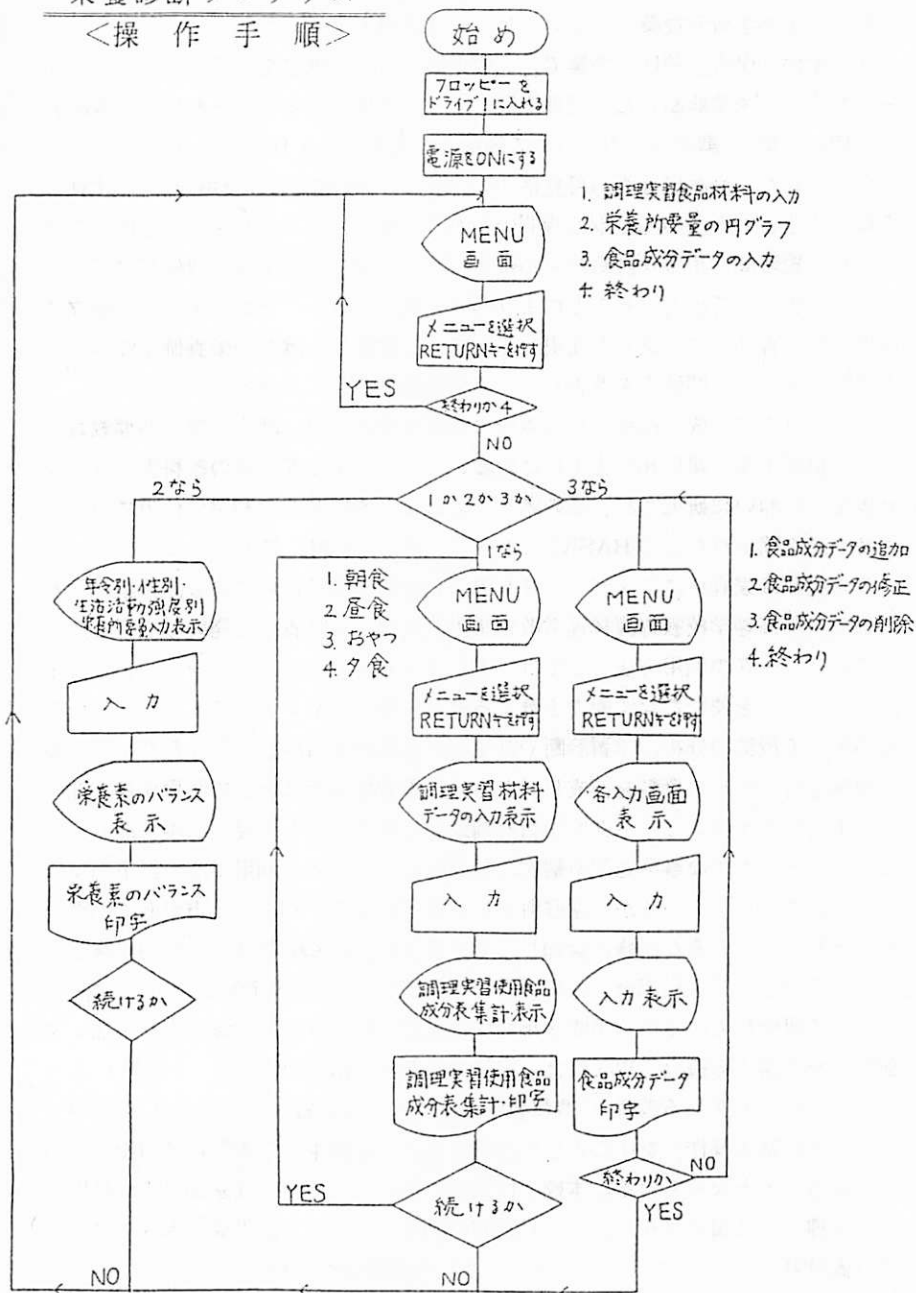 ＜操作手順＞
始め
フロッピーを
ドライブ1に入れる
電源をONにする
MENU
画面
1. 調理実習食品材料の入力
2. 栄養所要量の円グラフ
3. 食品成分データの入力
4. 終わり
メニューを選択
RETURNキーを押す
YES
終わりか4
NO
2なら
1か2か3か
3なら
1なら
年令別・性別・
生活活動の強度別
栄養所要量入力表示
入力
栄養素のバランス
表示
栄養素のバランス
印字
続けるか
NO
1. 朝食
2. 昼食
3. おやつ
4. 夕食
MENU
画面
メニューを選択
RETURNキーを押す
調理実習材料
データの入力表示
入力
調理実習使用食品
成分表集計・表示
調理実習使用食品
成分表集計・印字
YES
続けるか
NO
MENU
画面
1. 食品成分データの追加
2. 食品成分データの修正
3. 食品成分データの削除
4. 終わり
メニューを選択
RETURNキーを押す
各入力画面
表示
入力
入力表示
食品成分データ
印字
終わりか
NO
YES